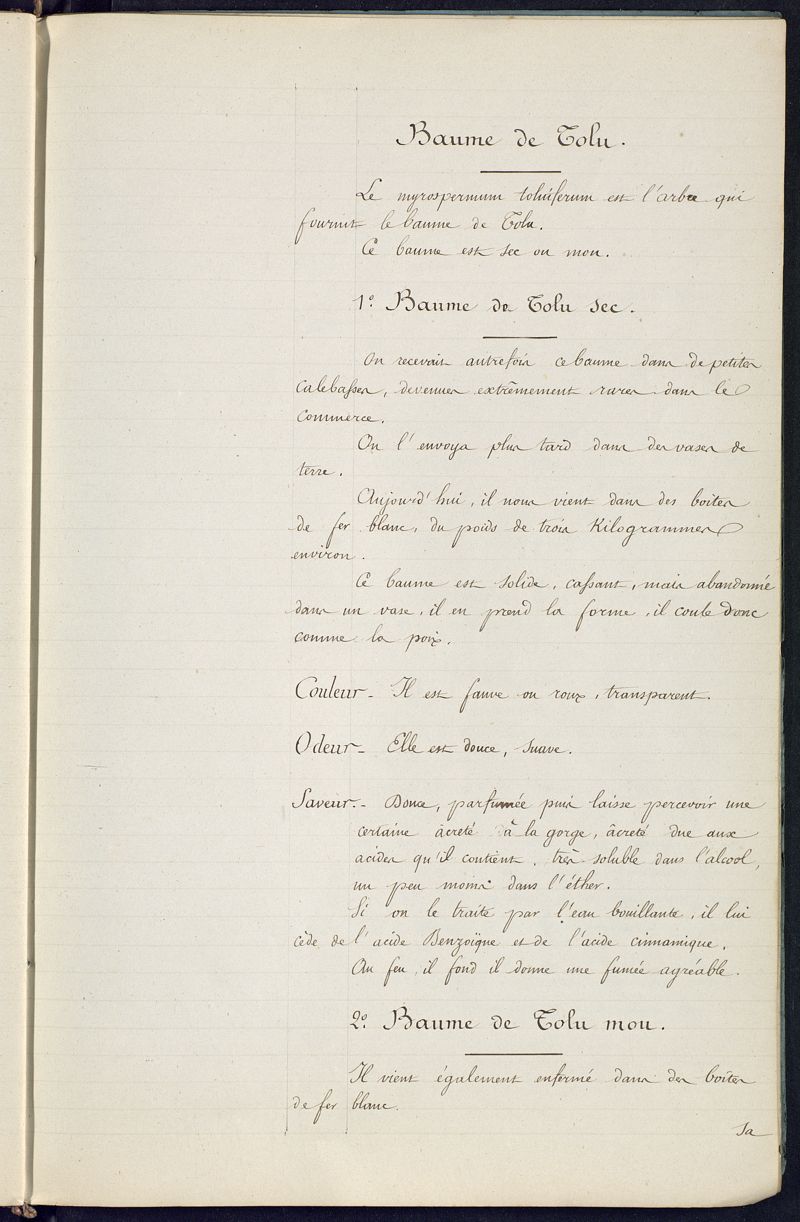 Baume de Tolu.
Le myrospermum toluiferum est l'arbre qui
fournit le baume de Tolu.
Ce baume est sec ou mou.
1º Baume de Tolu sec.
On recevait autrefois ce baume dans de petites
calebasses, devenues extrêmement rares dans le
commerce.
On l'envoya plus tard dans des vases de
terre.
Aujourd'hui, il nous vient dans des boites
de fer blanc, du poids de trois Kilogrammes
environ.
Ce baume est solide, cassant, mais abandonné
dans un vase, il en prend la forme, il coule donc
comme la poix.
Couleur - Il est fauve ou roux, transparent.
Odeur - Elle est douce, suave.
Saveur. - Douce, parfumée puis laisse percevoir une
certaine âcreté à la gorge, âcreté due aux
acides qu'il contient, très soluble dans l'alcool,
un peu moins dans l'éther.
Si on le traite par l'eau bouillante, il lui
cède de l'acide Benzoïque et de l'acide cinnamique.
Au feu, il fond il donne une fumée agréable.
2º. Baume de Tolu mou.
Il vient également enfermé dans des boites
de fer blanc.
Sa